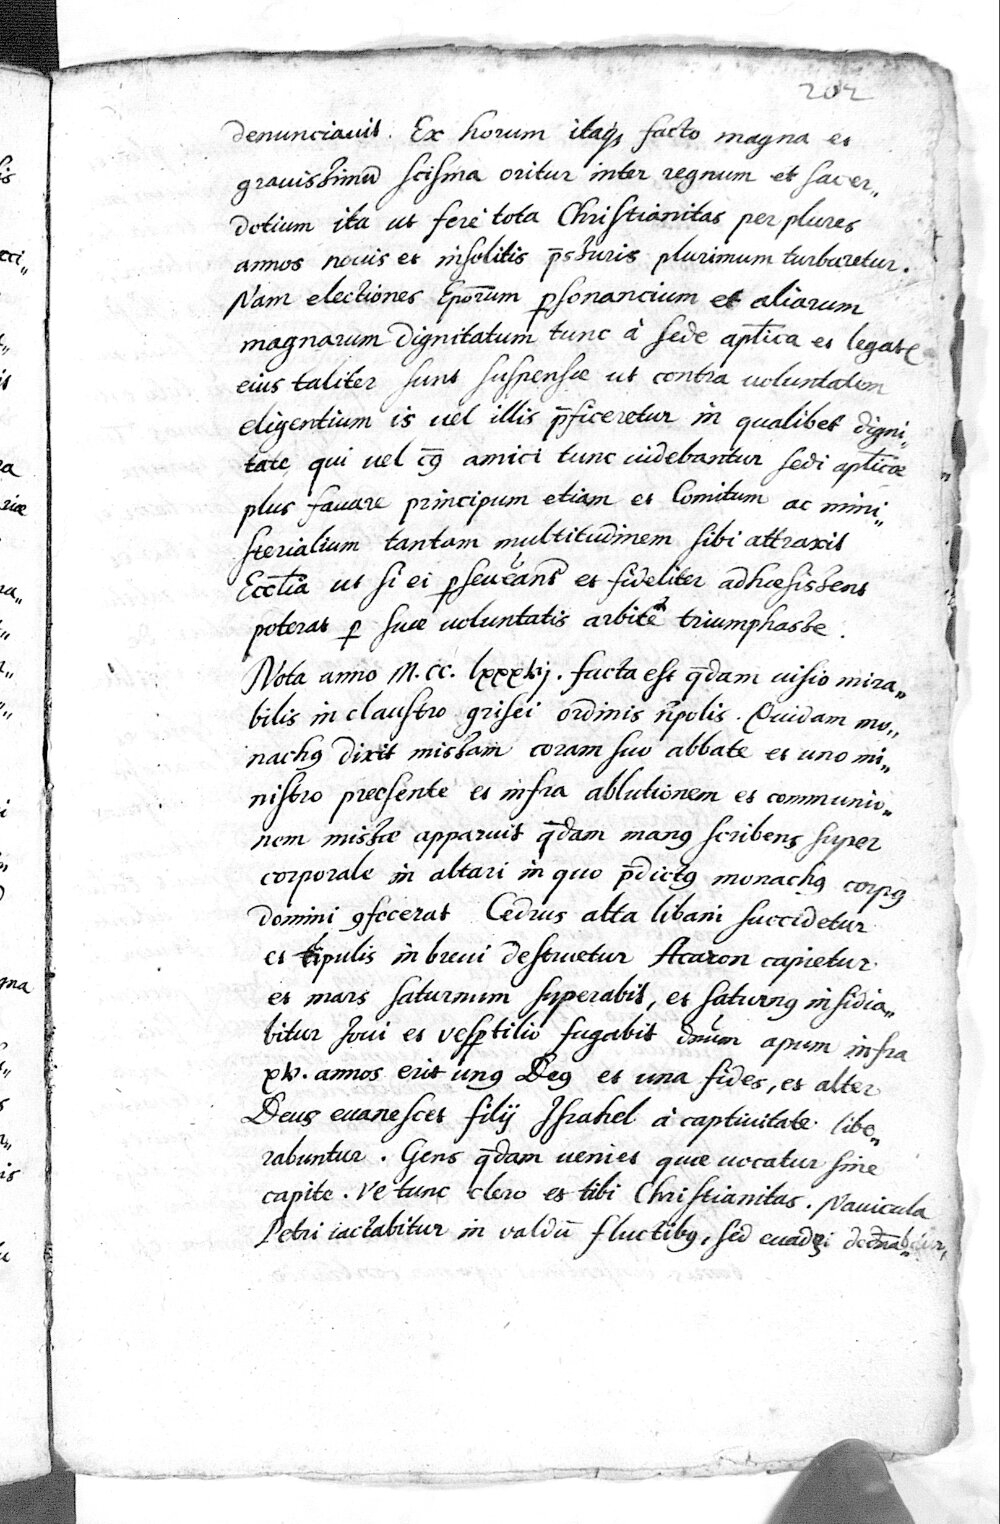 202
denunciauit. Ex horum itaq3 facto magna et
grauissimū scisma oritur inter regnum et sacer„
dotium ita ut fere tota Christianitas per plures
annos nouis et insolitis p̄ssuris plurimum turbaretur.
Nam electiones Ep̄orum p̱sonancium et aliarum
magnarum dignitatum tunc à sede ap̄tica et legat
eius taliter sunt suspensæ ut contra uoluntatem
eligentium is uel illis p̄ficeretur in qualibet digni„
tate, qui uel amici tunc uidebantur sedi ap̄ticæ
plus fauare principum etiam et Comitum ac mini„
sterialium tantam multitudinem sibi attraxit
Eccl̄ia ut si ei p̱seuerans et fideliter adhæsissent
poterat p̱ suæ uoluntatis arbit triumphasse.
Nota anno M.CC.lxxxvij. facta est q̄dam uisio mira„
bilis in claustro grisei ordinis . Quidam mo„
nachꝰ dixit missam coram suo abbate et uno mi„
nistro præsente et infra ablutionem et communio„
nem missæ apparuit q̄dam manꝰ scribens super
corporale in altari in quo p̄dictꝰ monachꝰ corpꝰ
domini ꝯfecerat Cedrus alta libani succidetur
et tipulis in breui destruetur Acaron capietur
et mars saturnum superabit, et saturnꝰ insidia„
bitur Ioui et vesp̱tilio fugabit dn̄um apum infra
xv. annos erit unꝰ Deꝰ et una fides, et alter
Deus euanescet filij Israhel à captiuitate libe„
rabuntur. Gens q̄dam ueniet quæ uocatur sine
capite. Ve tunc clero et tibi Christianitas. Nauicula
Petri iactabitur in valdū fluctibꝰ, sed